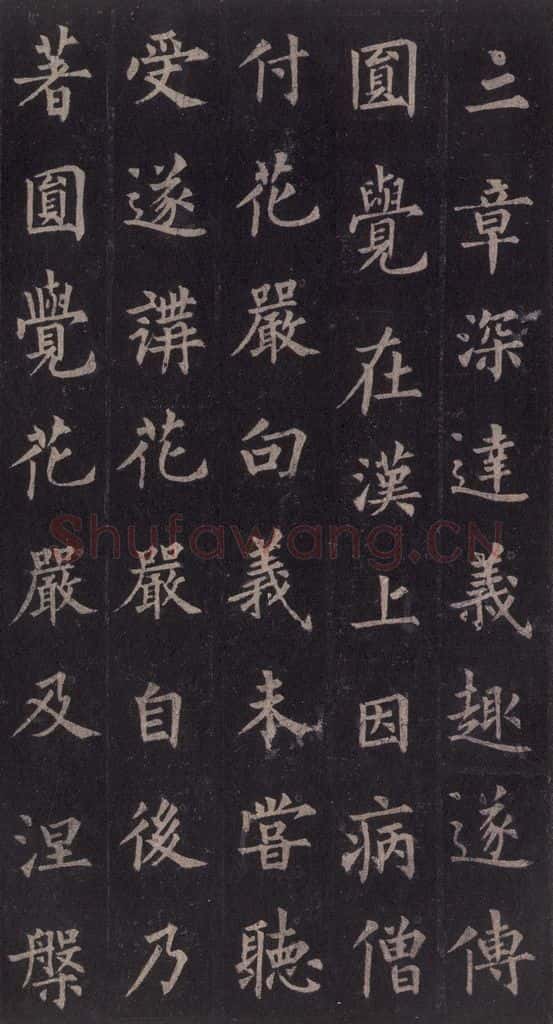 三章深達義趣遂傳
圎覺在漢上因病僧
付花嚴句義未嘗聽
受遂講花嚴自後乃
著圎覺花嚴及涅槃
Shufawang.CN